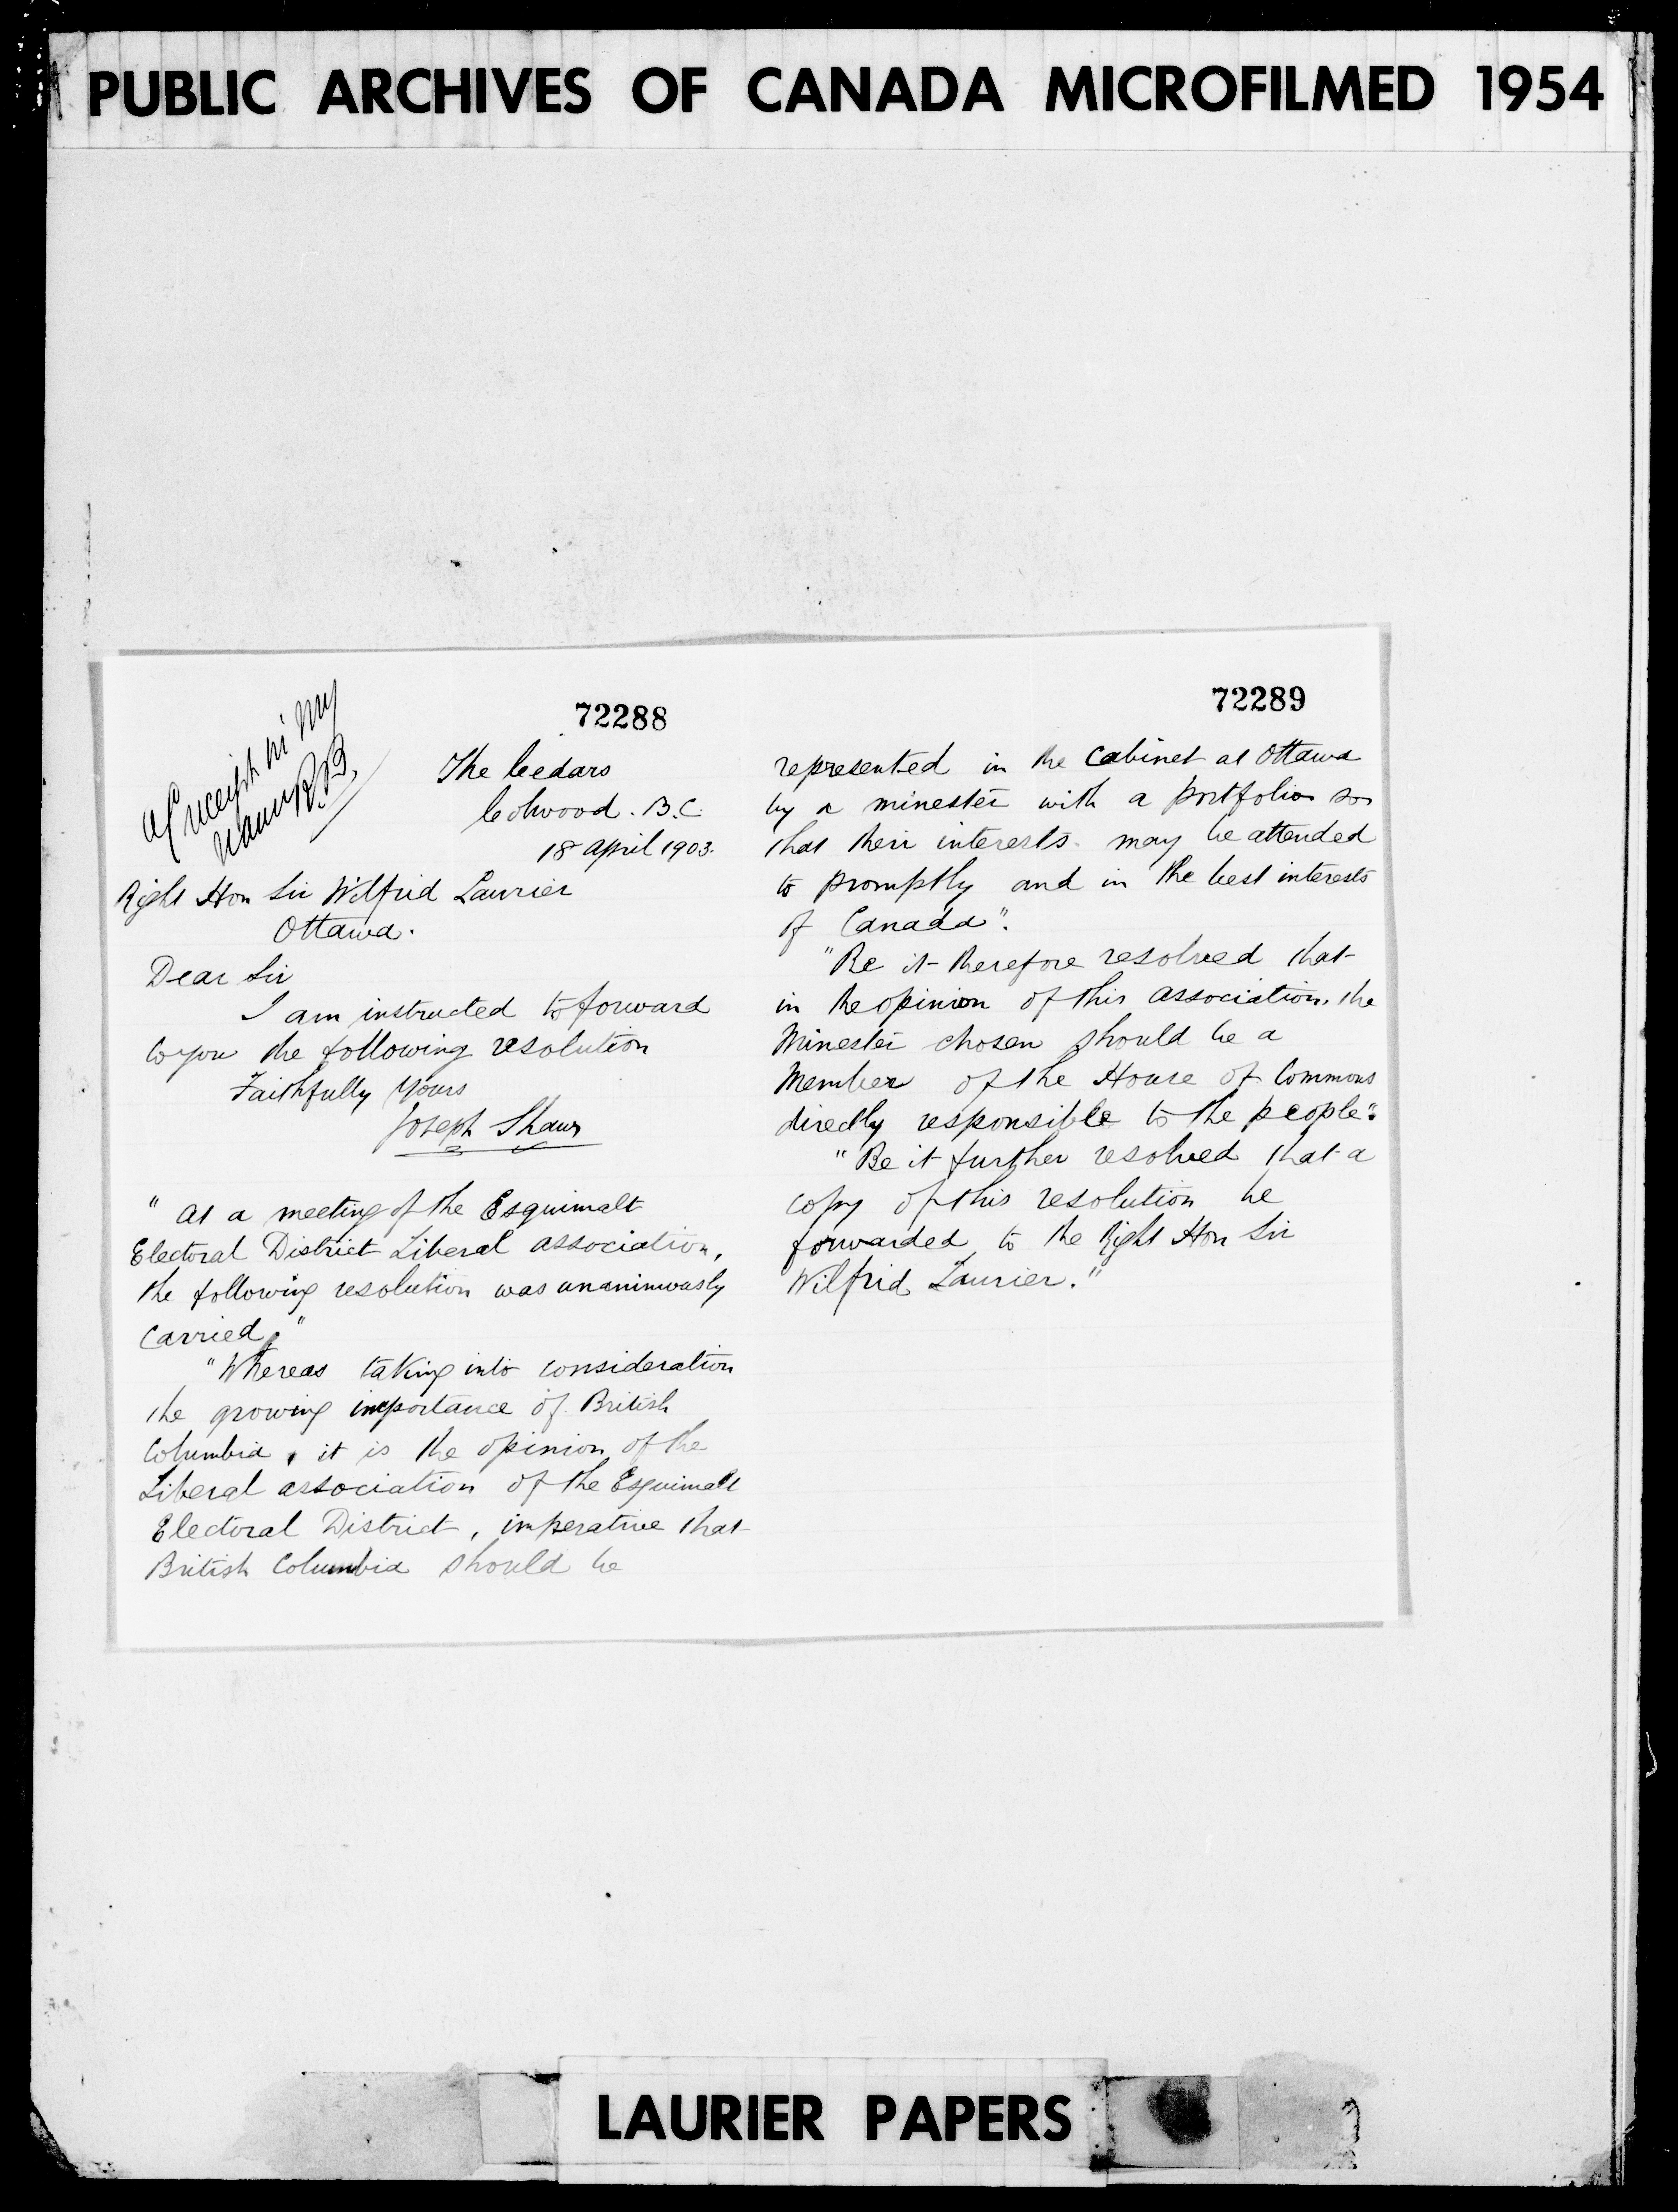 PUBLIC ARCHIVES OF CANADA MICROFILMED 1954
72288
receipt in my
name R.B.
The Cedars
Colwood. B.C.
18 April 1903.
Right Hon Sir Wilfrid Laurier
Ottawa.
Dear Sir
I am instructed to forward
to you the following resolution
Faithfully Yours
Joseph Shaw
"At a meeting of the Esquimalt
Electoral District Liberal Association,
the following resolution was unanimously
carried;"
"Whereas taking into consideration
the growing importance of British
Columbia, it is the opinion of the
Liberal association of the Esquimalt
Electoral District, imperative that
British Columbia should be
72289
represented in the Cabinet at Ottawa
by a minester with a portfolio so
that their interests may be attended
to promptly and in the best interests
of Canada".
"Be it therefore resolved that
in the opinion of this Association, the
Minester chosen should be a
Member of the House of Commons
directly responsible to the people".
"Be it further resolved that a
copy of this resolution be
forwarded to the Right Hon Sir
Wilfrid Laurier."
LAURIER PAPERS